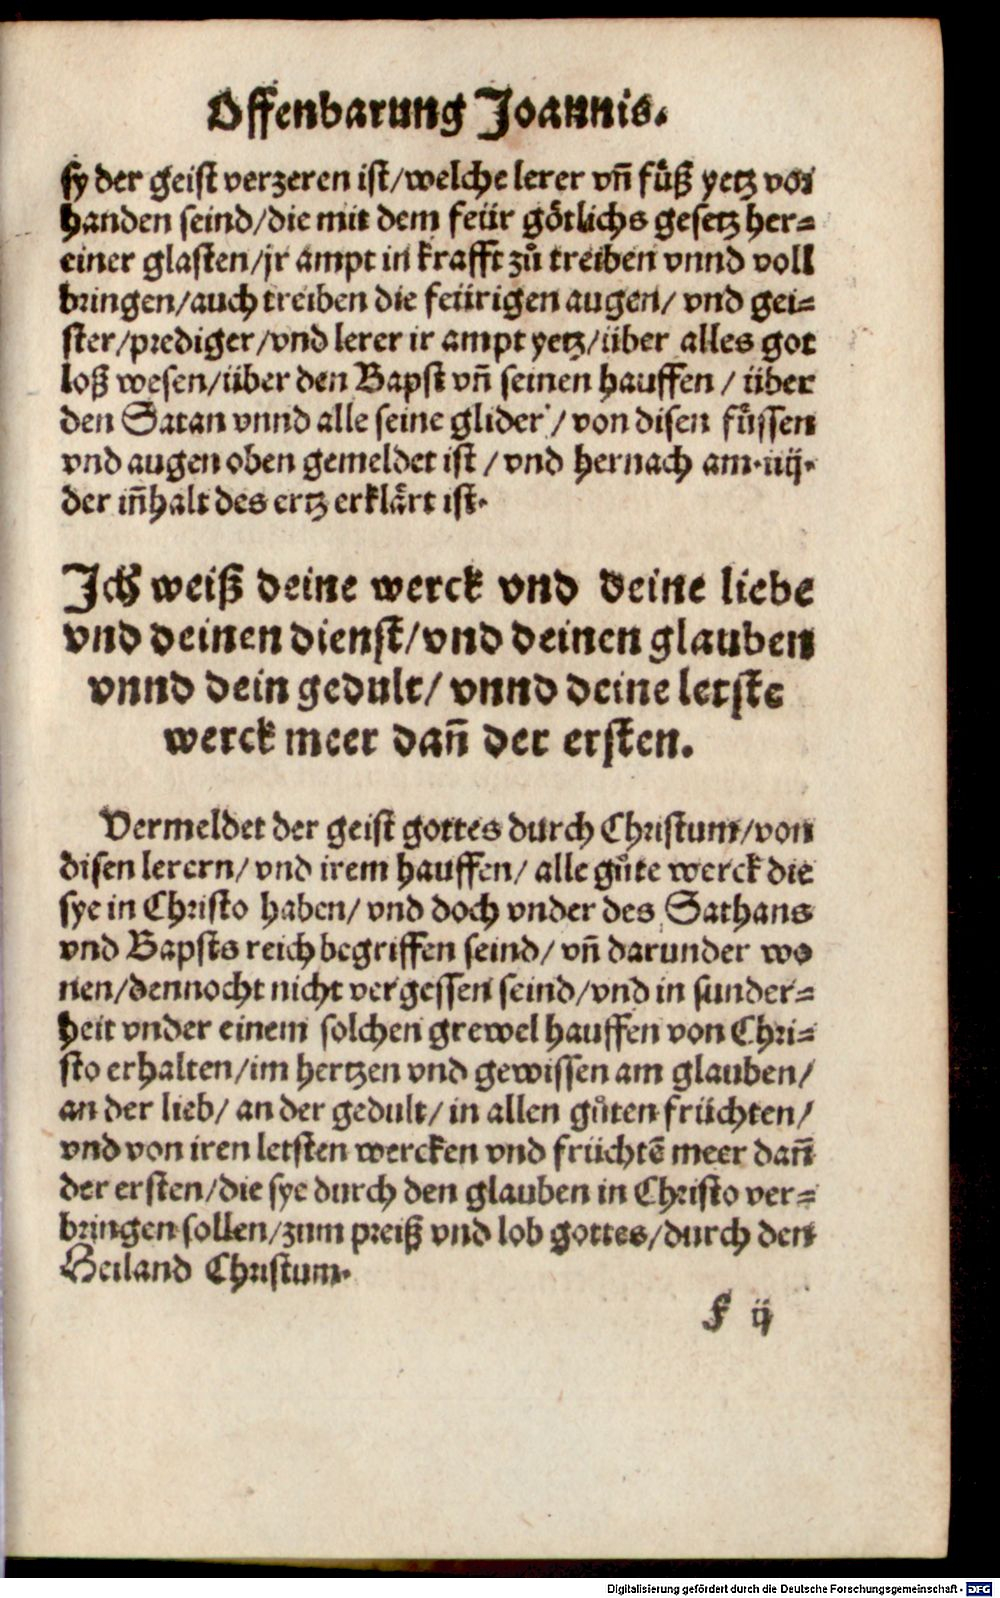 Offenbarung Joannis.
sy der geist verzeren ist/welche lerer vñ fuͤß yetz vor
handen seind/die mit dem feür goͤtlichs gesetz her=
einer glasten/jr ampt in krafft zuͦ treiben vnnd voll
bringen/auch treiben die feürigen augen/ vnd gei=
ster/prediger/vnd lerer ir ampt yetz/über alles got
loß wesen/über den Bapst vñ seinen hauffen / über
den Satan vnnd alle seine glider / von disen fuͤssen
vnd augen oben gemeldet ist / vnd hernach am.iij.
der iñhalt des ertz erklaͤrt ist.
Ich weiß deine werck vnd deine liebe
vnd deinen dienst/vnd deinen glauben
vnnd dein gedult/ vnnd deine letste
werck meer dañ der ersten.
Vermeldet der geist gottes durch Christum/von
disen lerern/ vnd irem hauffen/ alle guͦte werck die
sye in Christo haben/ vnd doch vnder des Sathans
vnd Bapsts reich begriffen seind/ vñ darunder wo
nen/dennocht nicht vergessen seind/vnd in sunder=
heit vnder einem solchen grewel hauffen von Chri=
sto erhalten/im hertzen vnd gewissen am glauben/
an der lieb/ an der gedult/ in allen guͦten früchten/
vnd von iren letsten wercken vnd früchtẽ meer dañ
der ersten/die sye durch den glauben in Christo ver=
bringen sollen/zum preiß vnd lob gottes/durch den
Heiland Christum.
f ij
Digitalisierung gefördert durch die Deutsche Forschungsgemeinschaft - DFG